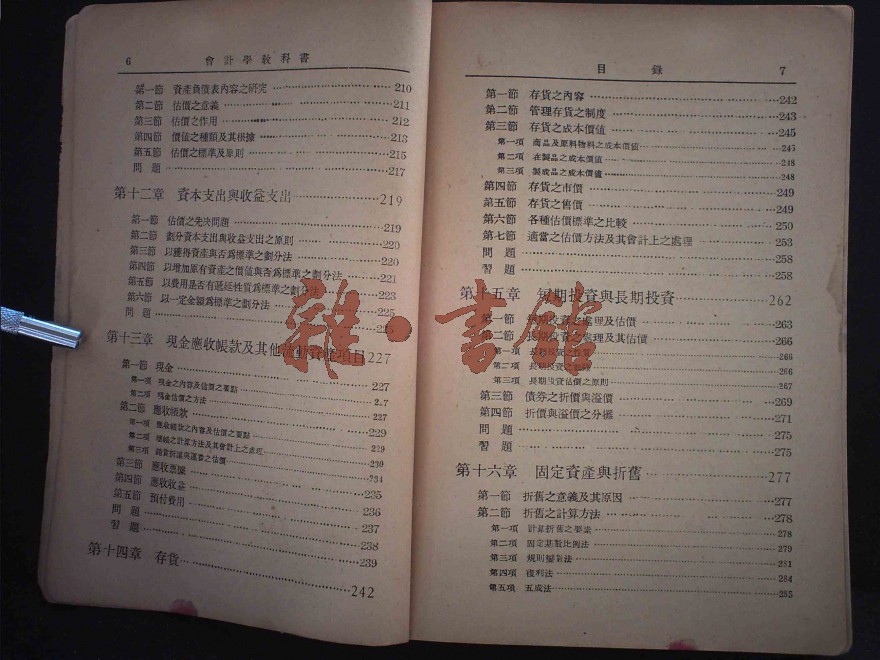 6 會計學教科書
第一節 資產負債表內容之研究 210
第二節 估價之意義 211
第三節 估價之作用 212
第四節 價值之種類及其根據 213
第五節 估價之標準及原則 215
問題 217
第十二章 資本支出與收益支出 219
第一節 估價之先决問題 219
第二節 劃分資本支出與收益支出之原則 220
第三節 以獲得資產與否爲標準之劃分法 220
第四節 以增加原有資產之價值與否爲標準之劃分法 221
第五節 以費用是否有遞延性質爲標準之劃分法 223
第六節 以一定金額爲標準之劃分法 225
問題
第十三章 現金應收帳款及其他流動資產項目 227
第一節 現金 227
第一項 現金之內容及估價之要點
第二項 現金估價之方法 227
第二節 應收帳款 229
第一項 應收帳款之內容及估價之要點 229
第二項 之計算方法及其會計上之處理 230
第三項 銷貨折讓與運費之估價 234
第三節 應收票據 235
第四節 應收收益 236
第五節 預付費用 237
問題 238
習題 239
第十四章 存貨 242
目錄 7
第一節 存貨之內容 242
第二節 管理存貨之制度 243
第三節 存貨之成本價值 245
第一項 商品及原料物料之成本價值 245
第二項 在製品之成本價值 248
第三項 製成品之成本價值 248
第四節 存貨之市價 249
第五節 存貨之售價 249
第六節 各種估價標準之比較 250
第七節 適當之估價方法及其會計上之處理 253
問題 258
習題 258
第十五章 短期投資與長期投資 262
第一節 短期投資之處理及估價 263
第二節 長期投資之處理及其估價 266
第一項 長期投資之 266
第二項 長期投資之 266
第三項 長期投資估價之原則 267
第三節 債券之折價與溢價 269
第四節 折價與溢價之分攤 271
問題 275
習題 275
第十六章 固定資產與折舊 277
第一節 折舊之意義及其原因 277
第二節 折舊之計算方法 278
第一項 計算折舊之要素 278
第二項 固定基數比例法 279
第三項 規則變動法 281
第四項 複利法 284
第五項 五成法 285
雜·書館